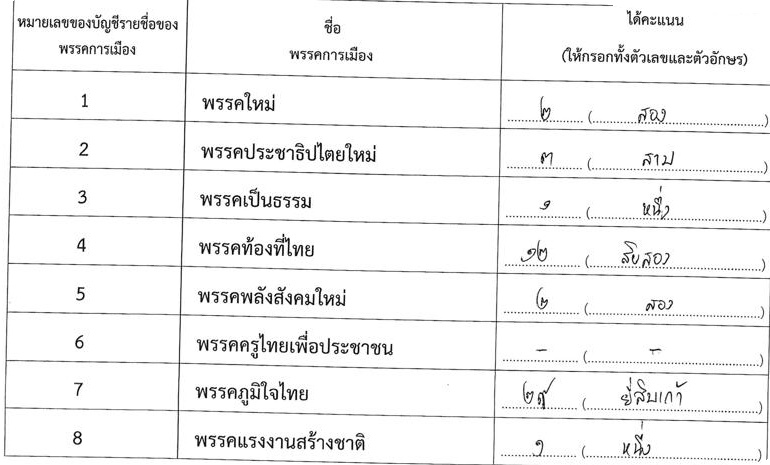 หมายเลขของบัญชีรายชื่อของพรรคการเมือง ชื่อพรรคการเมือง ได้คะแนน (ให้กรอกทั้งตัวเลขและตัวอักษร)
1 พรรคใหม่ ๒ (สอง)
2 พรรคประชาธิปไตยใหม่ ๓ (สาม)
3 พรรคเป็นธรรม ๑ (หนึ่ง)
4 พรรคท้องที่ไทย ๑๒ (สิบสอง)
5 พรรคพลังสังคมใหม่ ๒ (สอง)
6 พรรคครูไทยเพื่อประชาชน - (-)
7 พรรคภูมิใจไทย ๒๙ (ยี่สิบเก้า)
8 พรรคแรงงานสร้างชาติ ๑ (หนึ่ง)